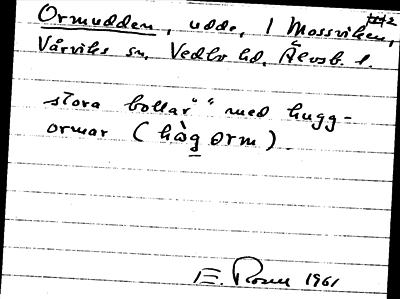 Ormudden, udde, i Mossviken,
Vårviks sn, Vedbo hd, Älvsb. l.
stora bollar" " med hugg-
ormar (hågorm).
E. Rosell 1961